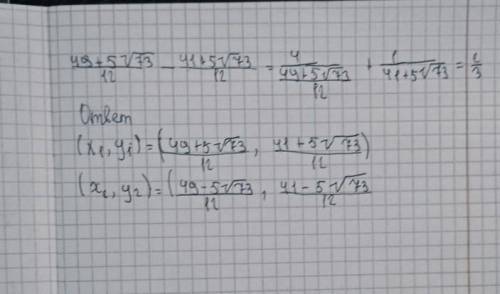 (49+5√73)/12 - (41+5√73)/12 = 4/((49+5√73)/12) + 1/(41+5√73) = 1/3
Ответ
(x₁, y₁) = ((49+5√73)/12, (41+5√73)/12)
(x₂, y₂) = ((49-5√73)/12, (41-5√73)/12